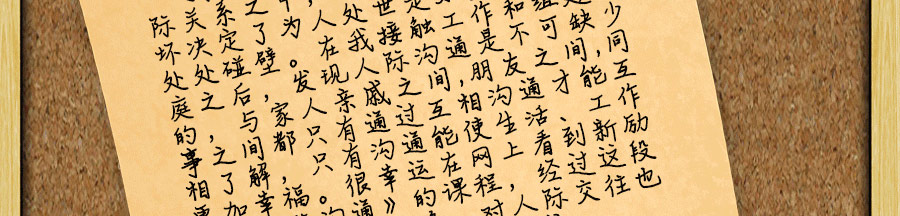 少问互作励段也
处缺间，能工新这往
组可之才、到过交
和不友通活看经际
作是朋沟生上，人
工通，相使网程对
是触沟间互能在课
世接际之过通运的
处我人戚通沟幸》
，人在现亲有有很通
为。发人只只。沟
之了壁，家都，福
系定碰后与间解幸
关决处之，之了加
际坏处庭的事相更